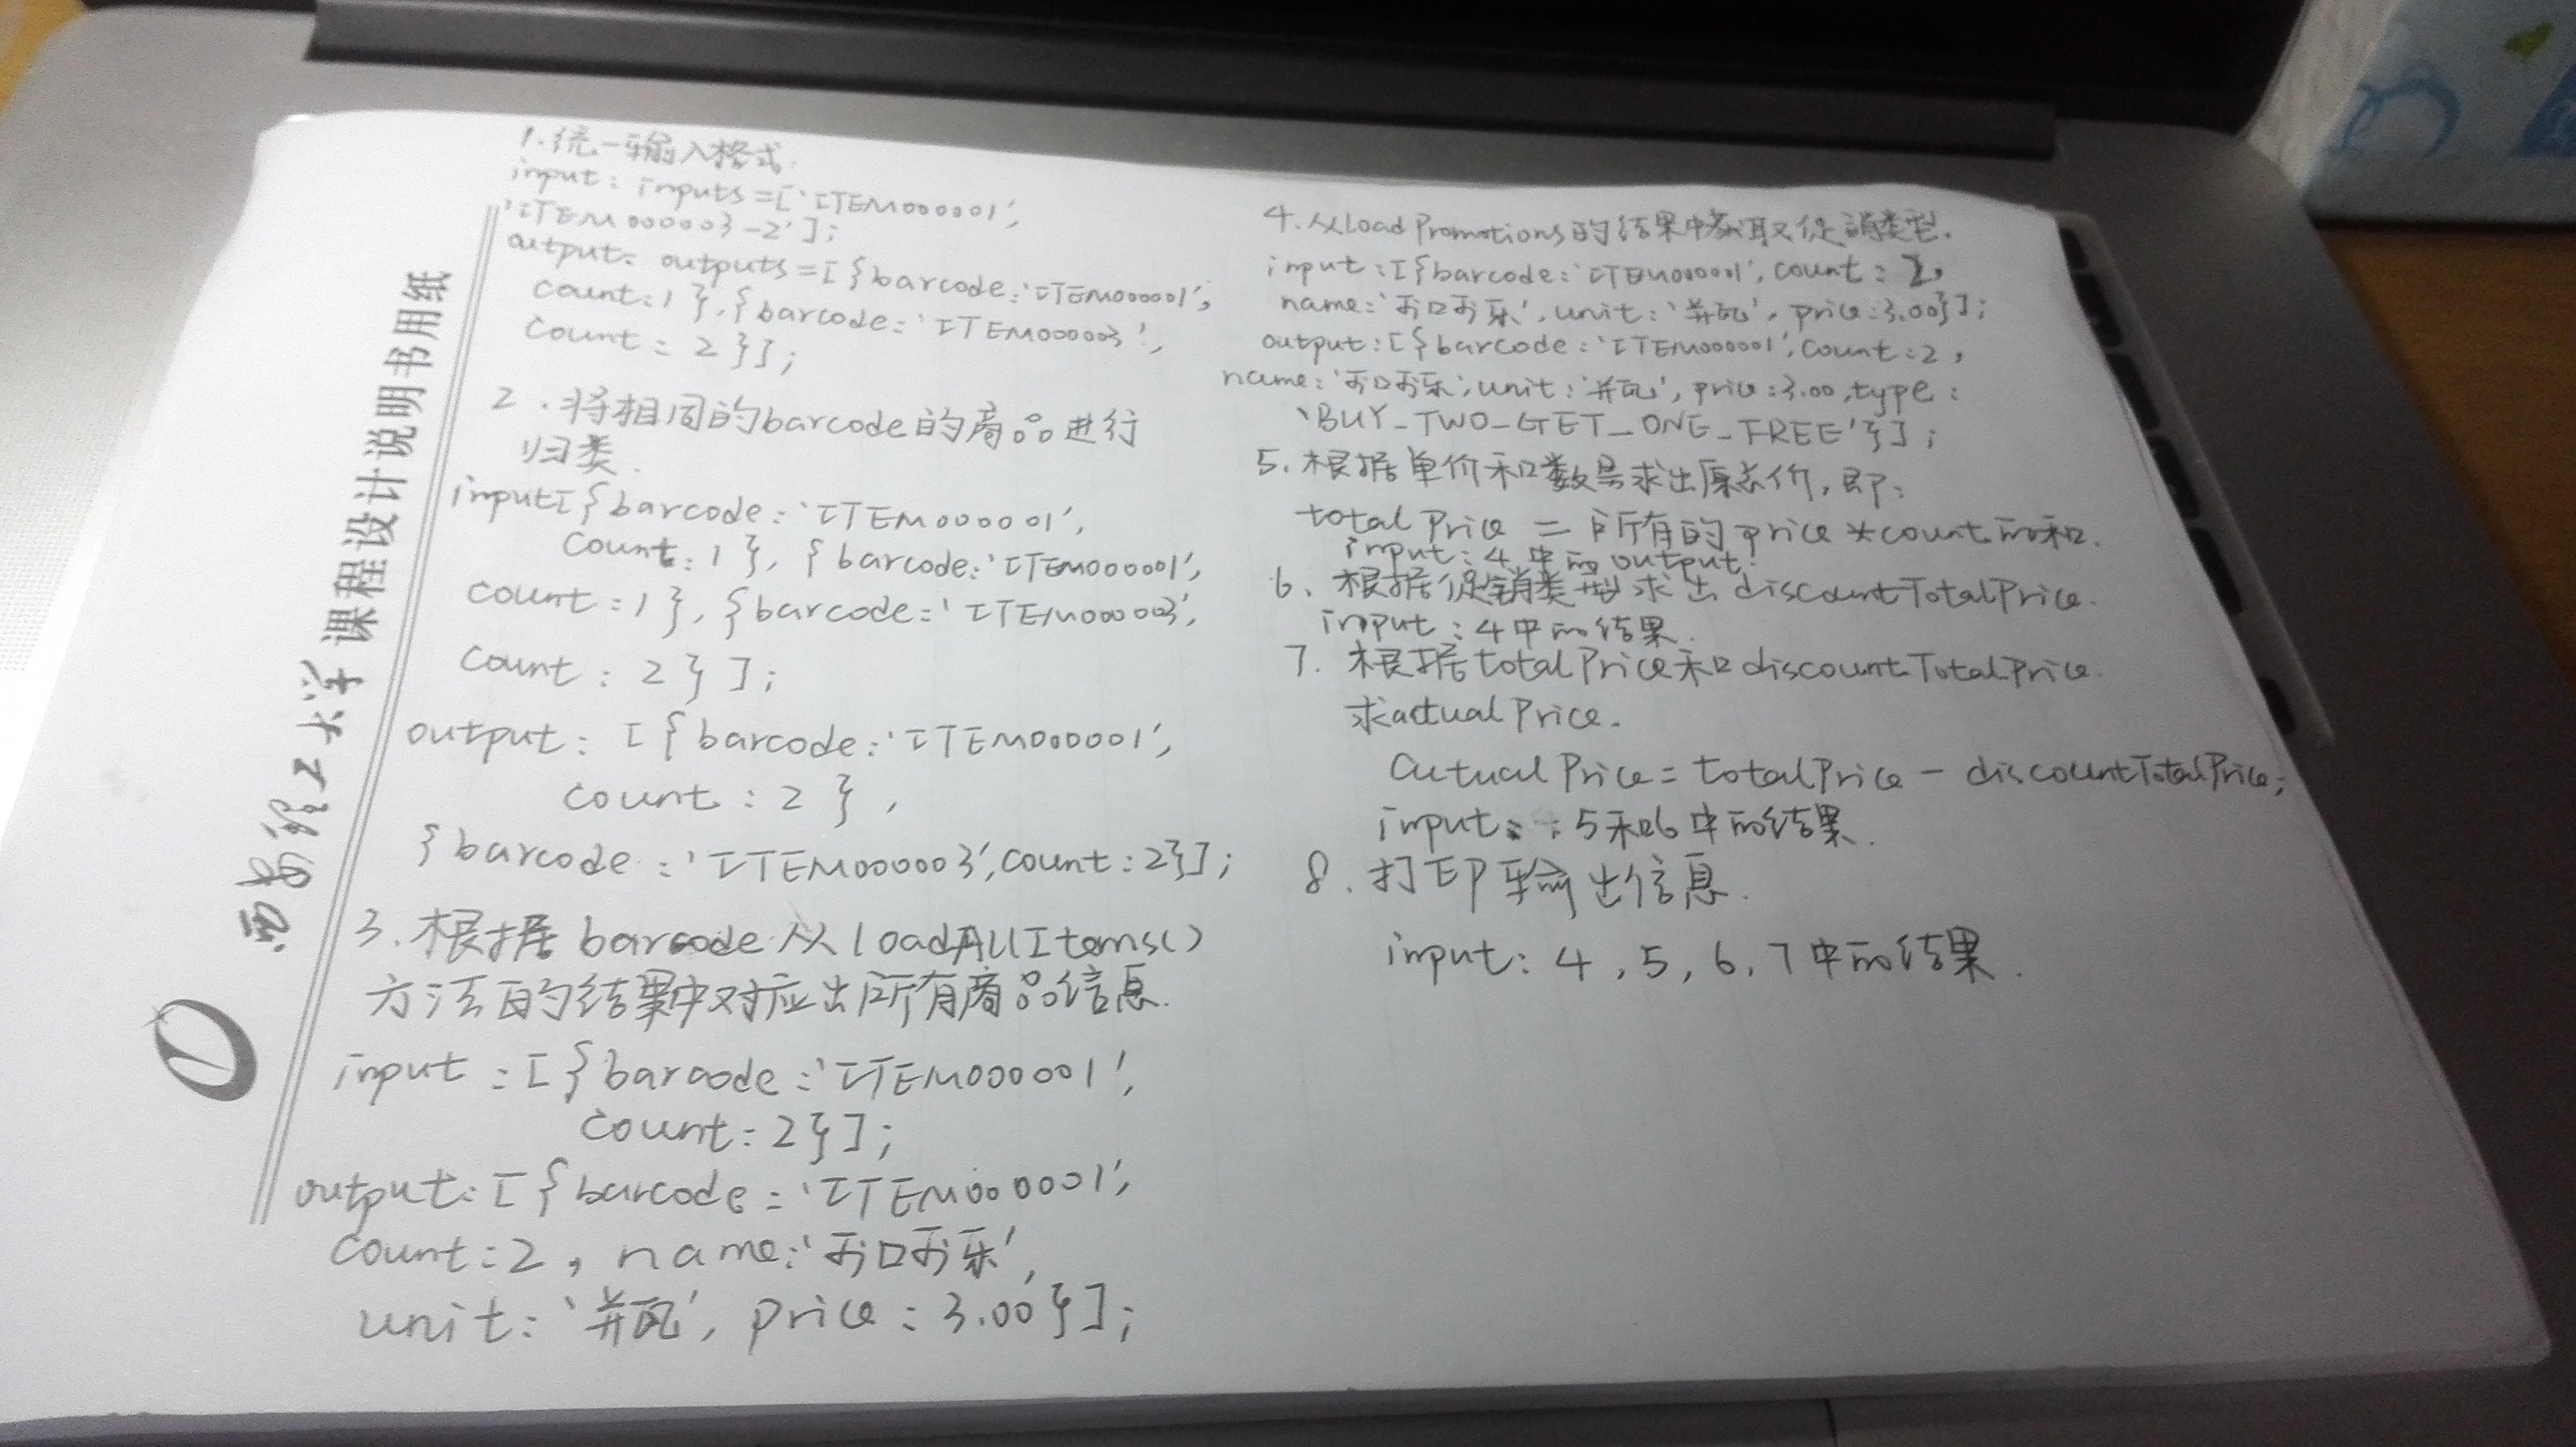 西安理工大学 课程设计说明书用纸
1.统一输入格式.
input: inputs=['ITEM000001',
'ITEM000003-2'];
output: outputs=[{barcode:'ITEM000001',
count:1},{barcode:'ITEM000003',
count:2}];
2.将相同的barcode的商品进行
归类.
input[{barcode:'ITEM000001',
count:1},{barcode:'ITEM000001',
count:1},{barcode:'ITEM000003',
count:2}];
output:[{barcode:'ITEM000001',
count:2},
{barcode:'ITEM000003',count:2}];
3.根据barcode从loadAllItems()
方法的结果中对应出所有商品信息.
input:[{barcode:'ITEM000001',
count:2}];
output:[{barcode:'ITEM000001',
count:2,name:'可口可乐',
unit:'瓶',price:3.00}];
4.从loadPromotions的结果中获取促销类型.
input:[{barcode:'ITEM000001',count:2,
name:'可口可乐',unit:'瓶',price:3.00}];
output:[{barcode:'ITEM000001',count:2,
name:'可口可乐',unit:'瓶',price:3.00,type:
'BUY_TWO_GET_ONE_FREE'}];
5.根据单价和数量求出原总价,即:
totalPrice=所有的price*count的和.
input:4中的output.
6、根据促销类型求出discountTotalPrice.
input:4中的结果.
7.根据totalPrice和discountTotalPrice.
求actualPrice.
autualPrice=totalPrice-discountTotalPrice;
input:5和6中的结果.
8.打印输出信息.
input:4,5,6,7中的结果.